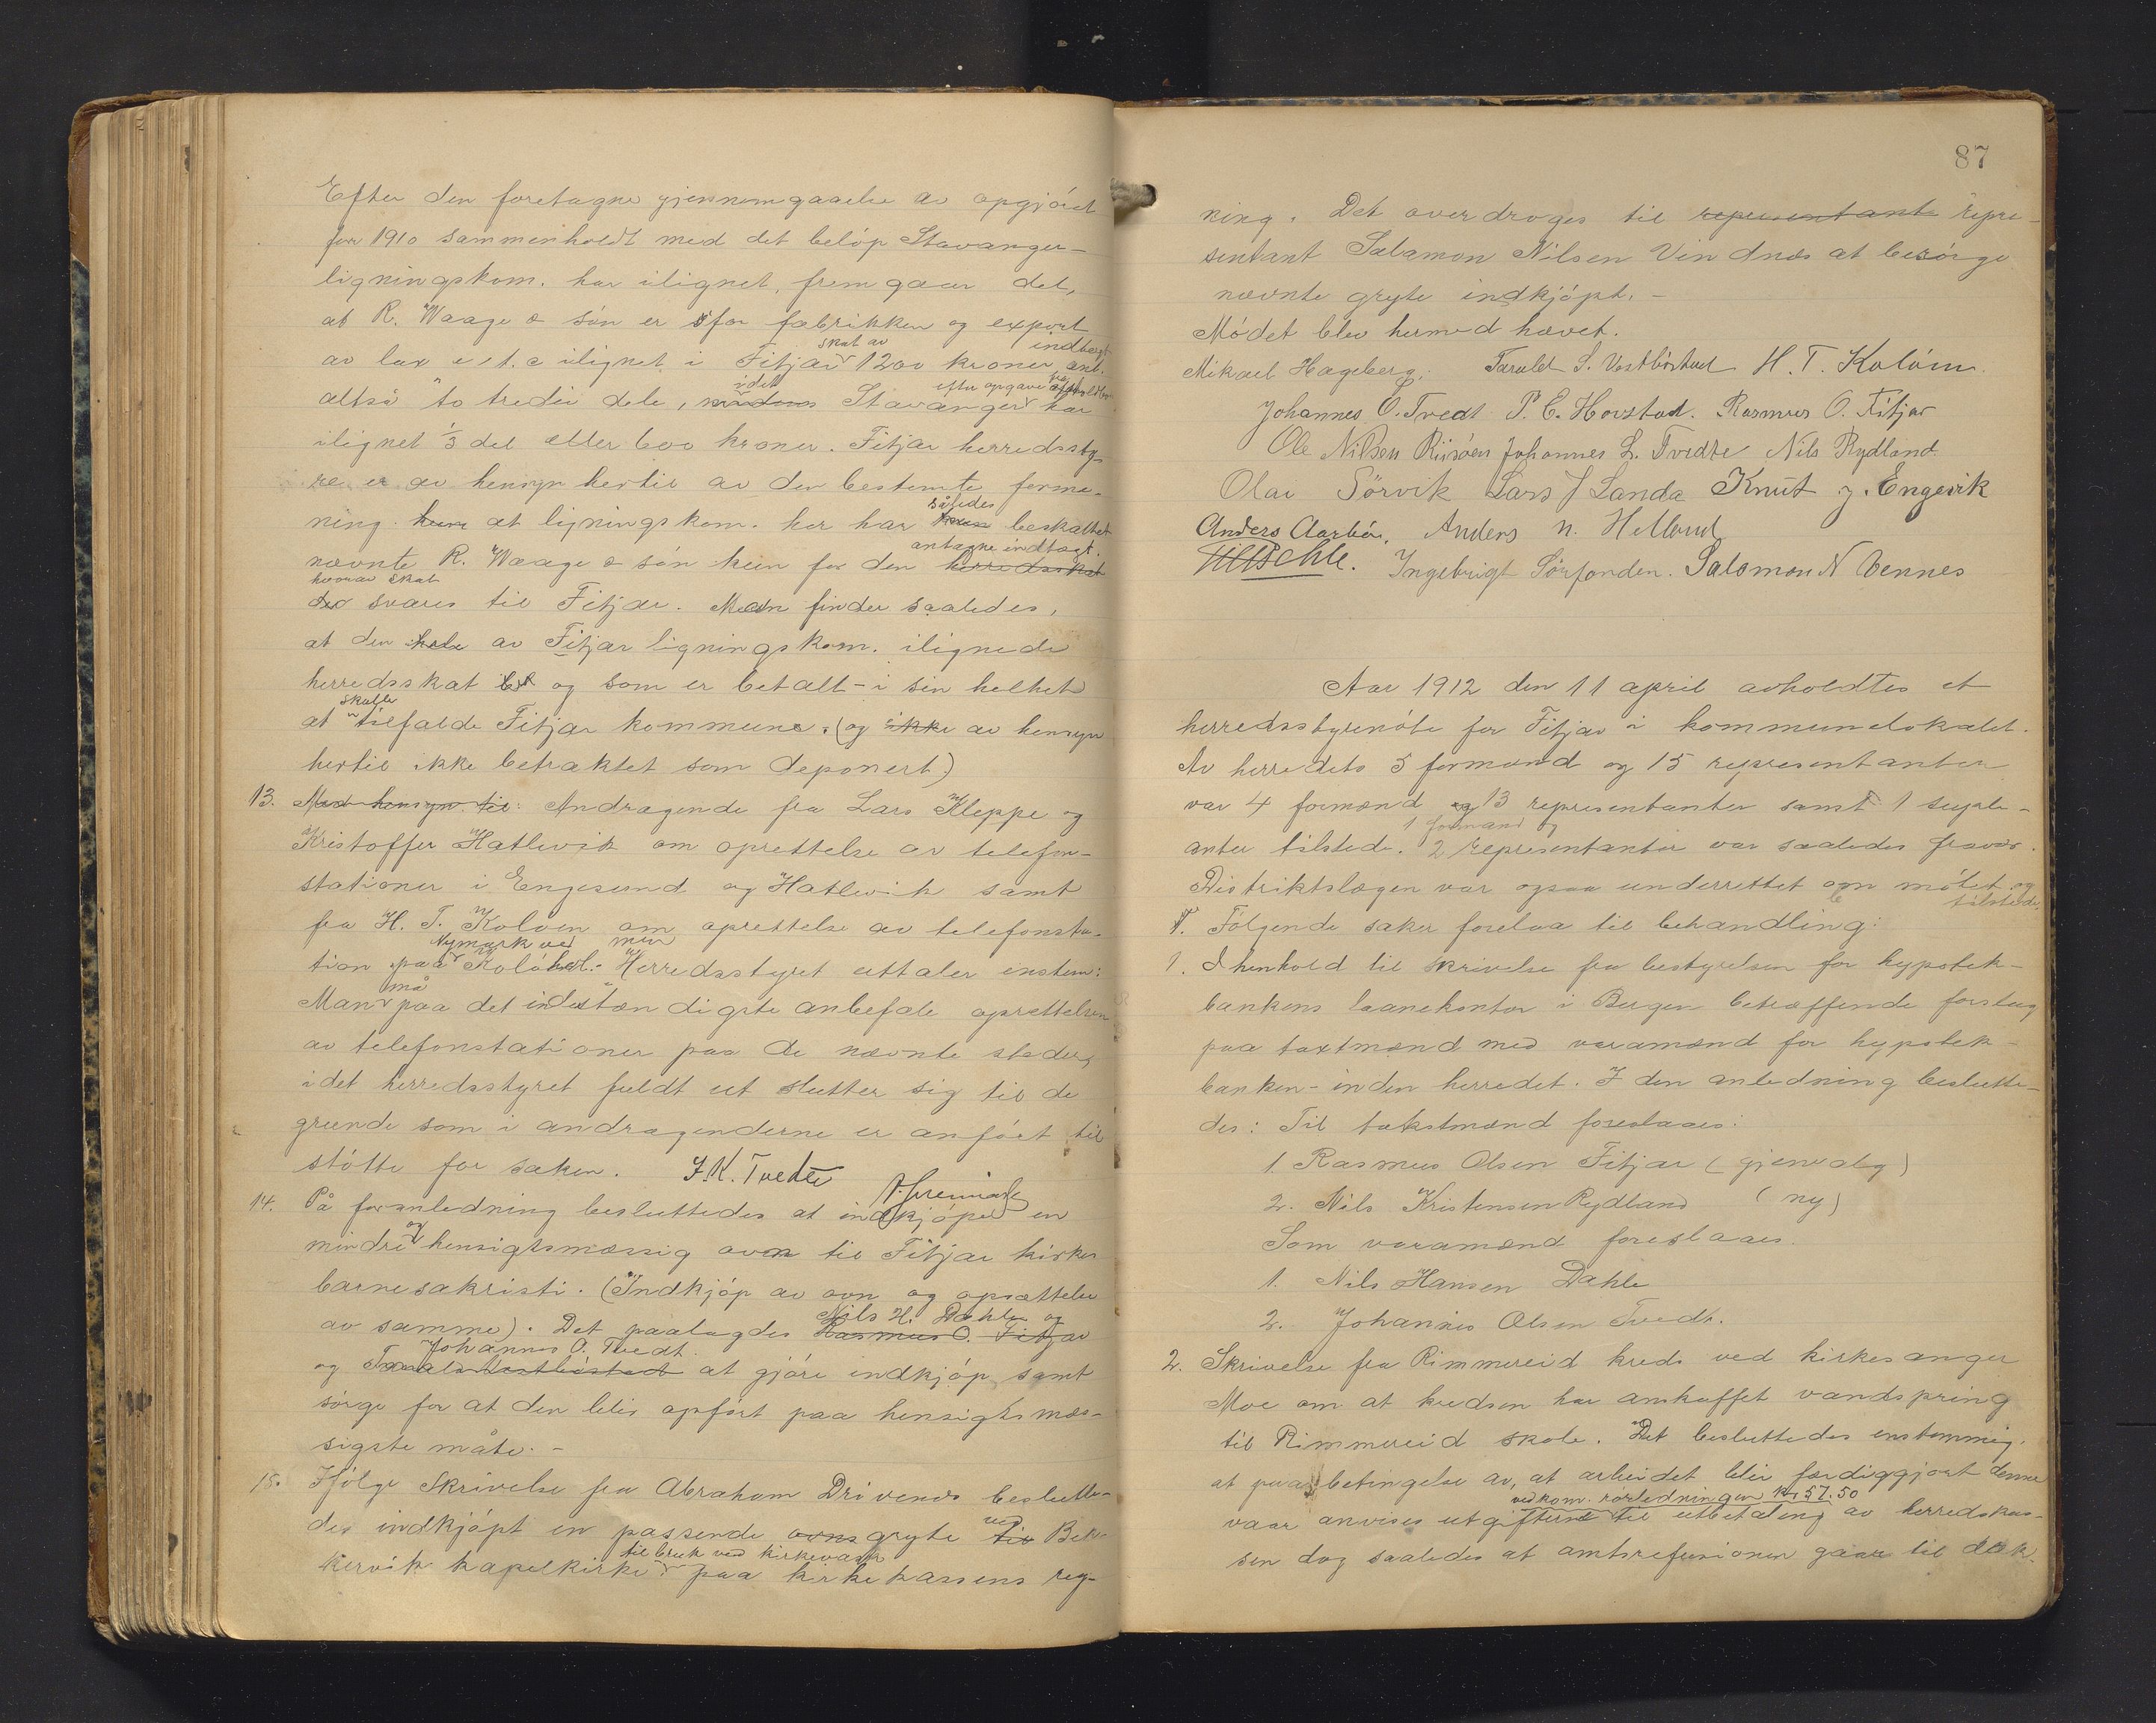 Efter den foretagne gjennemgaaelse av opgjöret
for 1910 sammenholdt med det belöp Stavanger-
ligningskom. har ilignet, fremgaar det,
at R. Waage & sön er for fabrikken og export
av lax e t. c ilignet i Fitjar skat av 1200 kroner indtægt
altså to tredie dele, idet Stavanger efter opgave har
ilignet 1/3 del eller 600 kroner. Fitjar herredssty-
re er av hensyn hertil av den bestemte forme-
ning at ligningskom. her har således beskattet
nævnte R. Waage & sön kun for den antagne indtægt.
hvorav skat svares til Fitjar. Man finder saaledes,
at den hele av Fitjar ligningskom. ilignede
herredsskat og som er betalt - i sin helhet
at skulle tilfalde Fitjar kommune. (og av hensyn
hertil ikke betraktet som deponert)
13. Med hensyn til: Andragende fra Lars Kleppe og
Kristoffer Hatlevik om oprettelse av telefon-
stationer i Engesund og Hatlevik samt
fra H. T. Kolöen om oprettelse av telefonsta-
tion paa Nymark ved Kolöhavl.- Herredsstyret uttaler enstem:
Man må paa det indstændigste anbefale oprettelsen
av telefonstationer paa de nævnte steder,
idet herredsstyret fuldt ut slutter sig til de
grunde som i andragenderne er anfört til
stötte for saken. J.K. Tvedte
14. På foranledning besluttedes at indkjöpe en
mindre og hensigtsmæssig ovn til Fitjar kirkes
barnesakristi. (Indkjöp av ovn og opsættelse
av samme). Det paalagdes Nils H. Dahle og Rasmus O. Fitjar
og Johannes O. Tvedt Tarald Vestböstad at gjöre indkjöp samt
sörge for at den blir opfört paa hensigtsmæs-
sigste måte. -
15. Ifölge skrivelse fra Abraham Drivenes beslutte-
des indkjöpt en passende gryte ved Bek-
kervik kapelkirke til bruk ved kirkevask paa kirkekassens reg-
87
ning. Det overdroges til representant repre-
sentant Salamon Nilsen Vindnes at besörge
nævnte gryte indkjöpt. -
Mödet blev hermed hævet.
Mikael Hageberg. Tarald S. Vestböstad H. T. Kolöen.
Johannes O. Tvedt P. C. Hovstad. Rasmus O. Fitjar
Ole Nilsen Riisöen Johannes L. Tvedte Nils Rydland.
Olai Sörvik Lars J Landa Knut J. Engevik
Anders Aarbö. Anders N. Helland
Ingebrigt Sörfonden. Salomon N Vennes
Aar 1912 den 11 april avholdtes et
herredsstyremöte for Fitjar i kommunelokalet.
Av herredets 5 formænd og 15 representanter
var 4 formænd og 13 representanter samt 1 suple-
anter tilstede. 1 formand og 2 representanter var saaledes fravær.
Distriktslægen var ogsaa underrettet om mötet og tilstede.
Fölgende saker forelaa til behandling:
1. I henhold til skrivelse fra bestyrelsen for hypotek-
bankens laanekontor i Bergen betræffende forslag
paa taxtmænd med varamænd for hypotek-
banken - inden herredet. I den anledning beslutte-
des: Til takstmænd foreslaaes:
1. Rasmus Olsen Fitjar (gjenvalg)
2. Nils Kristensen Rydland (ny)
Som varamænd foreslaaes.
1. Nils Hansen Dahle
2. Johannes Olsen Tvedt.
2. Skrivelse fra Rimmereid kreds ved kirkesanger
Moe om at kredsen har anskaffet vandspring
til Rimmereid skole. Det besluttedes enstemmig.
at paa betingelse av, at arbeidet blir færdiggjort denne
vaar anvises utgifterne vedkom. rörledningen kr 57.50 til utbetaling av herredskas-
sen dog saaledes at amtsrefusionen gaar til dæk-